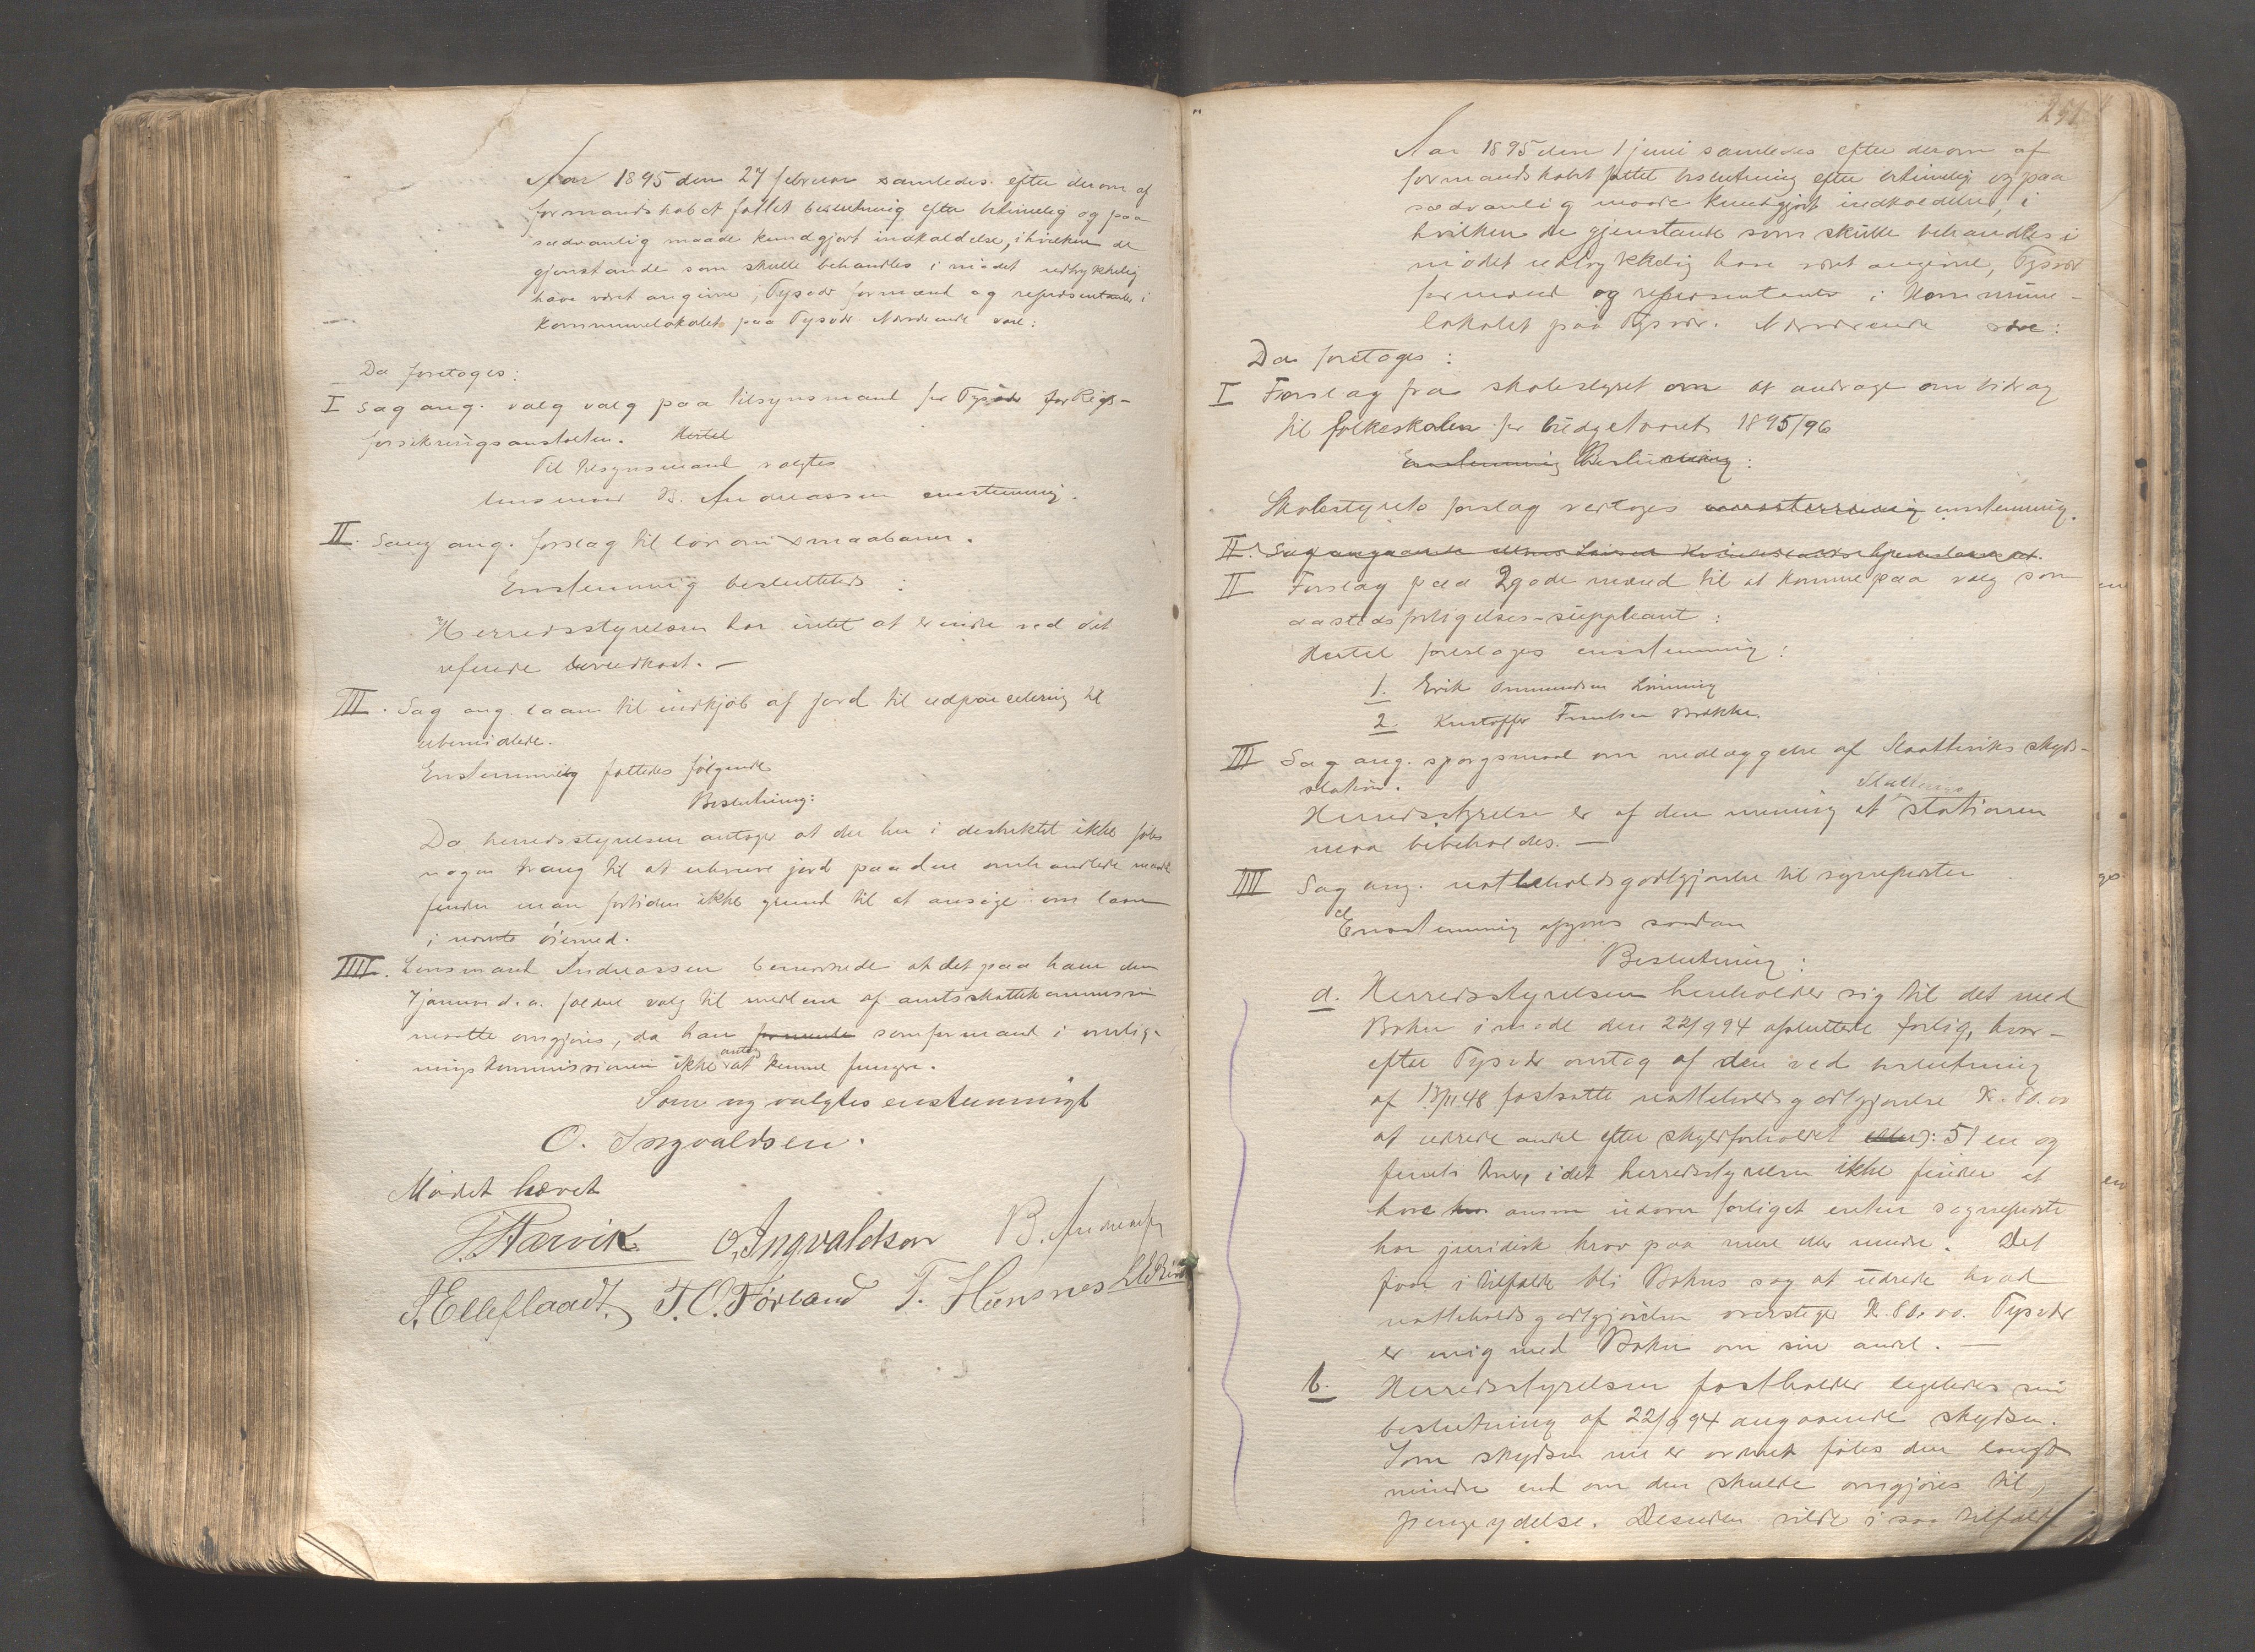 Aar 1895 den 27 februar samledes efter derom af
formandskabet fattet beslutning efter betimelig og paa
sædvanlig maade kundgjort indkaldelse, i hvilken de
gjenstande som skulle behandles i mødet udtrykkelig
have været angivne, Tysvær formænd og repræsentanter i
Kommunelokalet paa Tysvær Nærværende vare:
Da foretoges:
I Sag ang. valg valg paa tilsynsmand for Tysvær for Rigs-
forsikringsanstalten. Hertil
Til tilsynsmand valgtes
lensmand B. Andreassen enstemmig.
II. Sang ang. forslag til lov om smaabaner.
Enstemmig besluttedes:
"Herredsstyrelsen har intet at erindre ved det
referede lovudkast. —
III. Sag ang. laan til indkjøb af jord til udparcelering til
ubemidlede.
Enstemmig fattedes følgende
Beslutning:
Da herredsstyrelsen antager at der her i distriktet ikke føles
nogen trang til at erhverve jord paa den omhandlede maade
finder man fortiden ikke grund til at ansøge om laan
i nævnte øiemed.
IIII. Lensmand Andreassen bemærkede at det paa ham den
7 januar d. a. faldne valg til medlem af amtsskattekommissio
nen maatte omgjøres, da han formente som formand i lignings
kommissionen ikke antog at kunne fungere.
Som ny valgtes enstemmigt
O. Ingvaldsen.
Mødet hævet
O. Ingvaldsen B. Andreassen
S. Elleflaadt. T. O. Førland T. Hunsnes
251
Aar 1895 den 1 juni samledes efter derom af
formandskabet fattet beslutning efter betimelig og paa
sædvanlig maade kundgjort indkaldelse, i
hvilken de gjenstande som skulle behandles i
mødet udtrykkelig have været angivne, Tysvær
formænd og repræsentanter i Kommune-
lokalet paa Tysvær. Nærværende vare:
Da foretoges:
I Forslag fra skolestyret om at andrage om bidrag
til folkeskolen for budgetaaret 1895/96
Enstemmig Beslutning:
Skolestyrets forslag vedtoges enstemmig enstemmig.
II. Sag angaaende
II Forslag paa 2 gode mænd til at komme paa valg som
aastedsforligelses-suppleant:
Hertil foresloges enstemmig:
1. Erik Ommundsen
2. Kristoffer Frakke.
III Sag ang. spørgsmaal om nedlæggelse af Slaattevigs skyds-
station.
Herredsstyrelse er af den mening at Slattevigs stationen
maa bibeholdes. —
IIII Sag ang. natteholdsgodtgjørelse til sogneprester
Enstemmig afgaves saadan
Beslutning:
a. Herredsstyrelsen henholder sig til det med
Bokn i møde den 22/9 94 afsluttede forlig, hvor-
efter Tysvær omtog af den ved beslutning
af 13/11 48 fastsatte natteholdsgodtgjørelse Kr. 80.00
at udrede andel efter skyldforholdet eller): 51 en og
femti kroner, idet herredsstyrelsen ikke finder at
have anden udover forliget enten sognepresten
har juridisk krav paa mere eller mindre. Det
faar i tilfælde bli Bokns sag at udrede hvad
natteholdsgodtgjørelsen overstiger Kr. 80.00. Tysvær
er enig med Bokn om sin andel. —
b. Herredsstyrelsen fastholder ligeledes sin
beslutning af 22/9 94 angaaende skydsen.
Som skydsen nu er ordnet føles den langt
mindre end om den skulde omgjøres til
pengeydelse. Desuden vilde i saa tilfælde